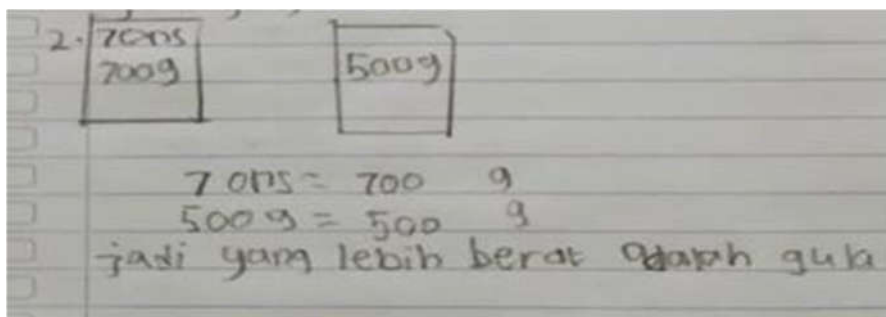 2. 7 ons
700g
500g
7 ons = 700 g
500 g = 500 g
jadi yang lebih berat adalah gula